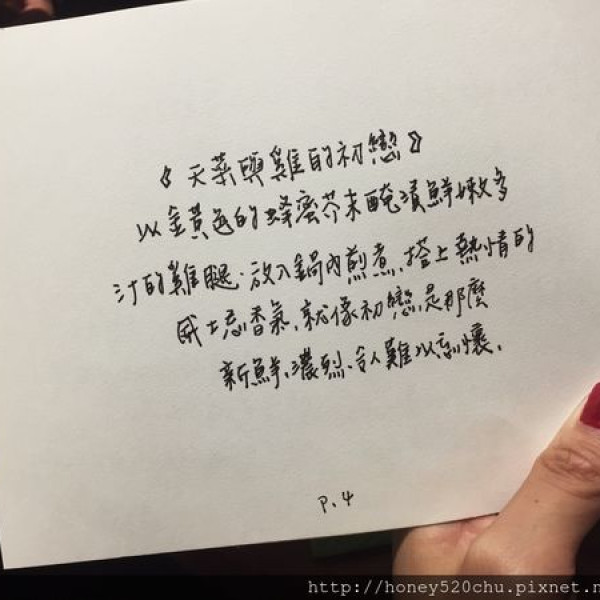 《天菜與雞的初戀》
以金黃色的蜂蜜芥末醃漬鮮嫩多
汁的雞腿.放入鍋內煎煮,搭上熱情的
威士忌香氣,就像初戀是那麼
新鮮、濃烈、令人難以忘懷.
P.4
http://honey520chu.pixnet.n